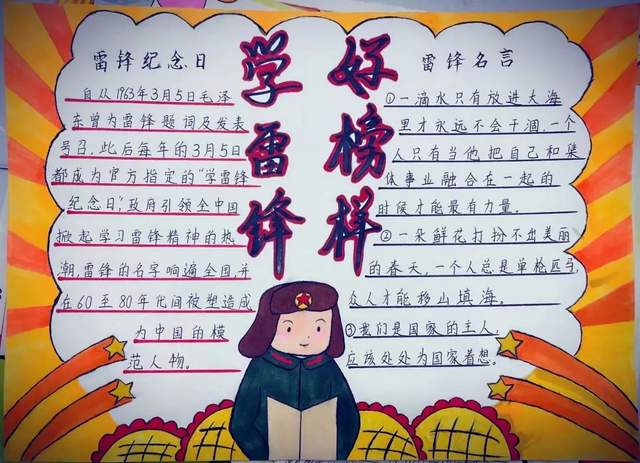 学雷锋
好榜样
雷锋纪念日
自从1963年3月5日毛泽
东曾为雷锋题词及发表
号召,此后每年的3月5日
都成为官方指定的“学雷锋
纪念日”,政府引领全中国
掀起学习雷锋精神的热
潮,雷锋的名字响遍全国,并
在60至80年代间被塑造成
为中国的模
范人物。
雷锋名言
①一滴水只有放进大海
里才永远不会干涸,一个
人只有当他把自己和集
体事业融合在一起的
时候才能最有力量。
②一朵鲜花打扮不出美丽
的春天,一个人总是单枪匹马,
众人才能移山填海。
③我们是国家的主人,
应该处处为国家着想。